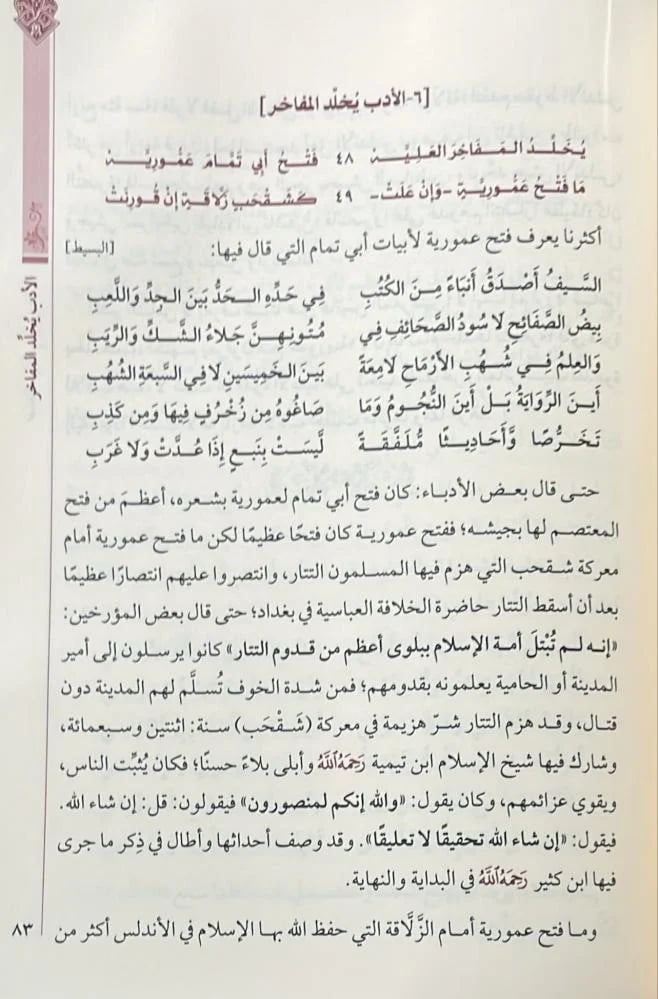 [٦-الأدب يُخلّد المفاخر]
يُخَلِّدُ المَفَاخِرَ العَلِيَّهْ ٤٨ فَتْحُ أَبِي تَمَّامَ عَمُّورِيَّهْ
مَا فَتْحُ عَمُّورِيَّةٍ -وَإِنْ عَلَتْ- ٤٩ كَشَقْحَبٍ زَلَّاقَةٍ إِنْ قُورِنَتْ
أكثرنا يعرف فتح عمورية لأبيات أبي تمام التي قال فيها: [البسيط]
السَّيفُ أَصْدَقُ أَنبَاءً مِنَ الكُتُبِ فِي حَدِّهِ الحَدُّ بَينَ الجِدِّ وَاللَّعِبِ
بِيضُ الصَّفَائِحِ لَا سُودُ الصَّحَائِفِ فِي مُتُونِهِنَّ جَلَاءُ الشَّكِّ وَالرِّيَبِ
وَالعِلمُ فِي شُهُبِ الأَرْمَاحِ لَامِعَةً بَينَ الخَمِيسَينِ لَا فِي السَّبعَةِ الشُّهُبِ
أَينَ الرِّوَايَةُ بَلْ أَينَ النُّجُومُ وَمَا صَاغُوهُ مِن زُخْرُفٍ فِيهَا وَمِن كَذِبِ
تَخَرُّصًا وَّأَحَادِيثًا مُلَفَّقَةً لَيسَتْ بِنَبعٍ إِذَا عُدَّتْ وَلَا غَرَبِ
حتى قال بعض الأدباء: كان فتح أبي تمام لعمورية بشعره، أعظمَ من فتح
المعتصم لها بجيشه؛ ففتح عمورية كان فتحًا عظيمًا لكن ما فتح عمورية أمام
معركة شقحب التي هزم فيها المسلمون التتار، وانتصروا عليهم انتصارًا عظيمًا
بعد أن أسقط التتار حاضرة الخلافة العباسية في بغداد؛ حتى قال بعض المؤرخين:
«إنه لم تُبْتلَ أمة الإسلام ببلوى أعظم من قدوم التتار» كانوا يرسلون إلى أمير
المدينة أو الحامية يعلمونه بقدومهم؛ فمن شدة الخوف تُسلَّم لهم المدينة دون
قتال، وقد هزم التتار شرّ هزيمة في معركة (شَقْحَب) سنة: اثنتين وسبعمائة،
وشارك فيها شيخ الإسلام ابن تيمية رَحِمَهُ اللَّهُ وأبلى بلاءً حسنًا؛ فكان يُثبِّت الناس،
ويقوي عزائمهم، وكان يقول: «والله إنكم لمنصورون» فيقولون: قل: إن شاء الله.
فيقول: «إن شاء الله تحقيقًا لا تعليقًا». وقد وصف أحداثها وأطال في ذِكر ما جرى
فيها ابن كثير رَحِمَهُ اللَّهُ في البداية والنهاية.
وما فتح عمورية أمام الزَّلَّاقة التي حفظ الله بها الإسلام في الأندلس أكثر من
٨٣
الأدب يُخلّد المفاخر